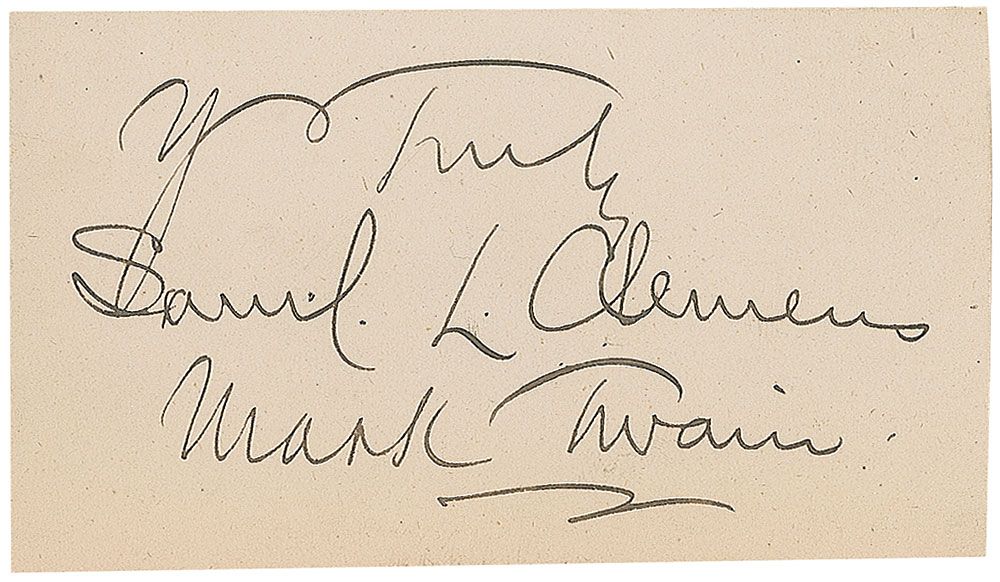 Y Truly
Saml. L. Clemens
Mark Twain